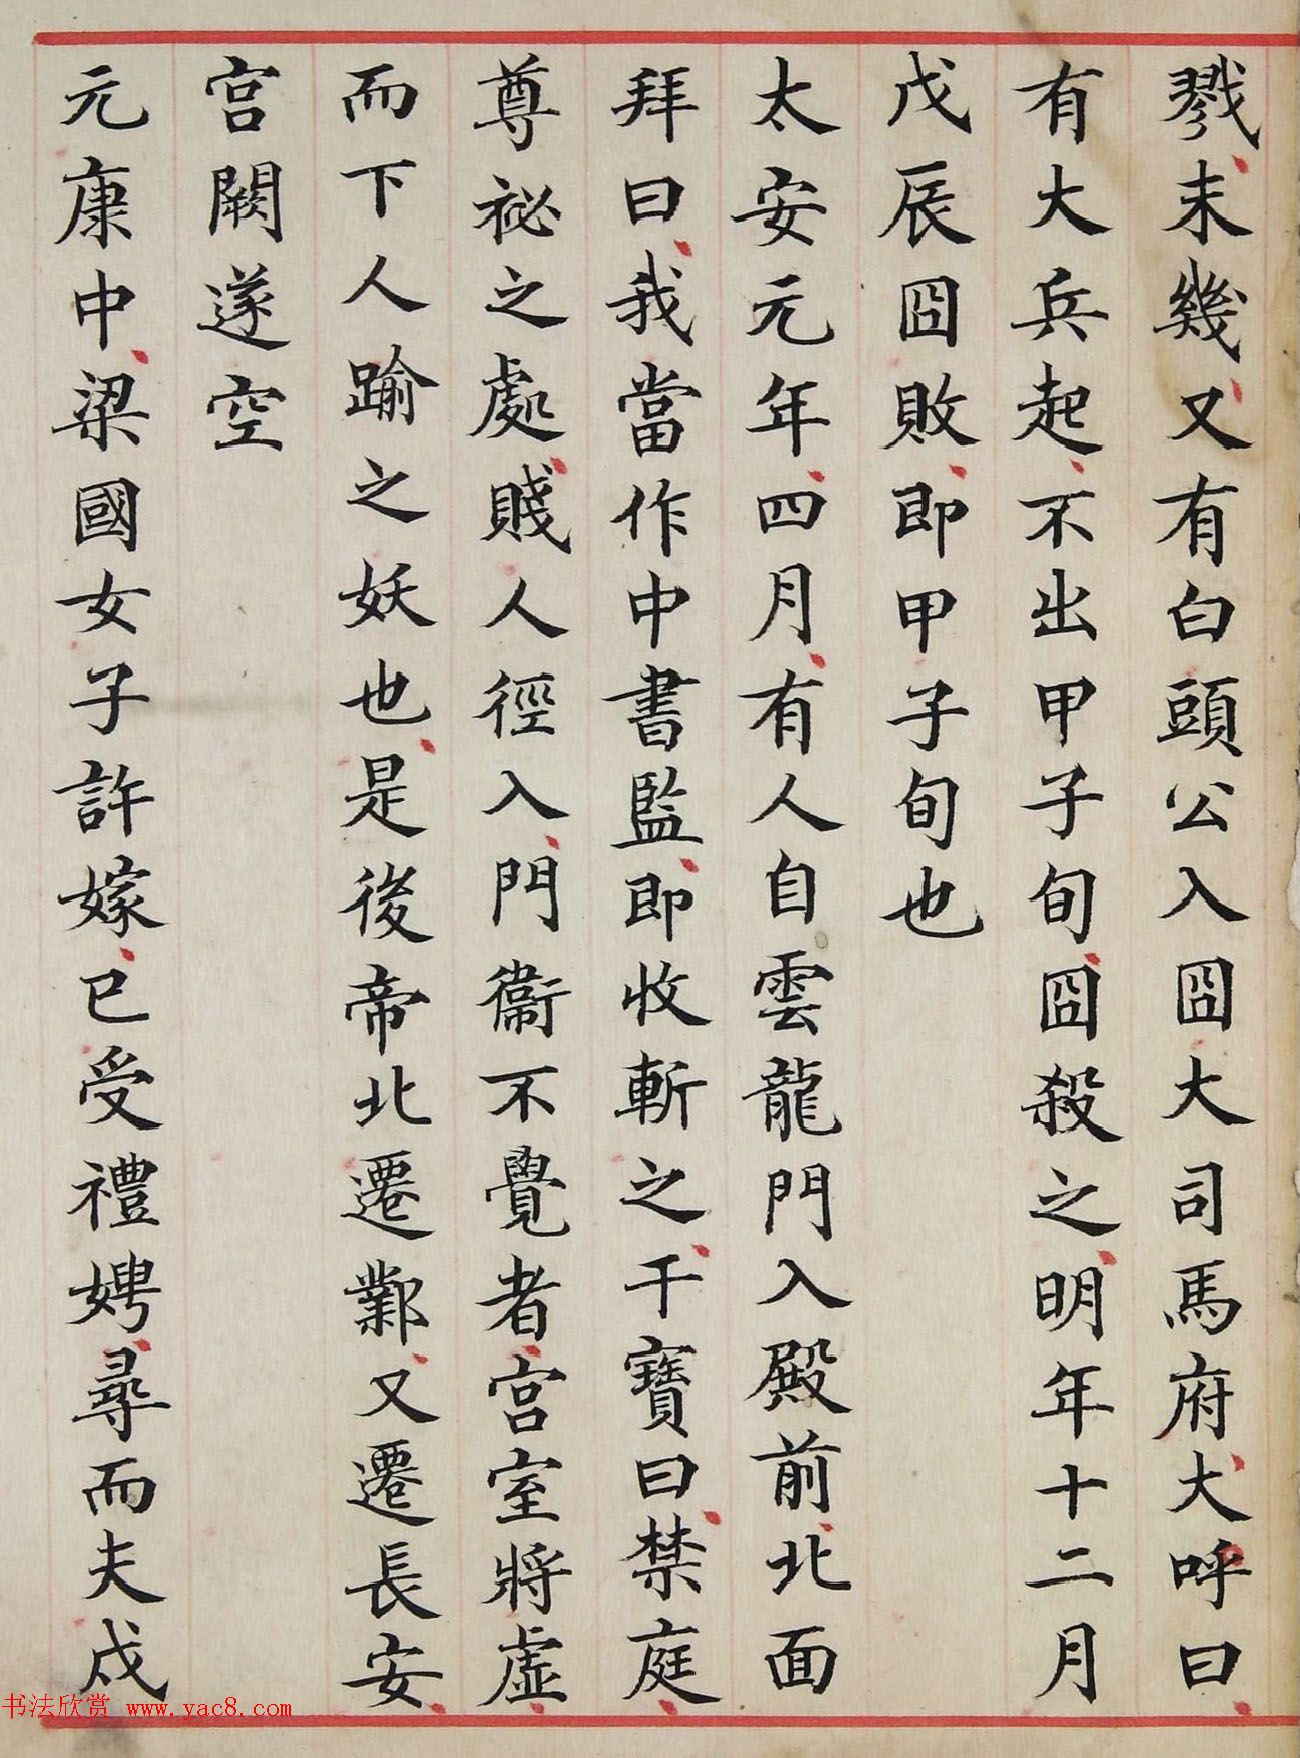 戮末幾又有白頭公入囧大司馬府大呼曰
有大兵起不出甲子旬囧殺之明年十二月
戊辰囧敗即甲子旬也
太安元年四月有人自雲龍門入殿前北面
拜曰我當作中書監即收斬之干寶曰禁庭
尊祕之處賤人徑入門衞不覺者宮室將虛
而下人踰之妖也是後帝北遷鄴又遷長安
宮闕遂空
元康中梁國女子許嫁已受禮娉尋而夫戍
书法欣赏 www.yac8.com